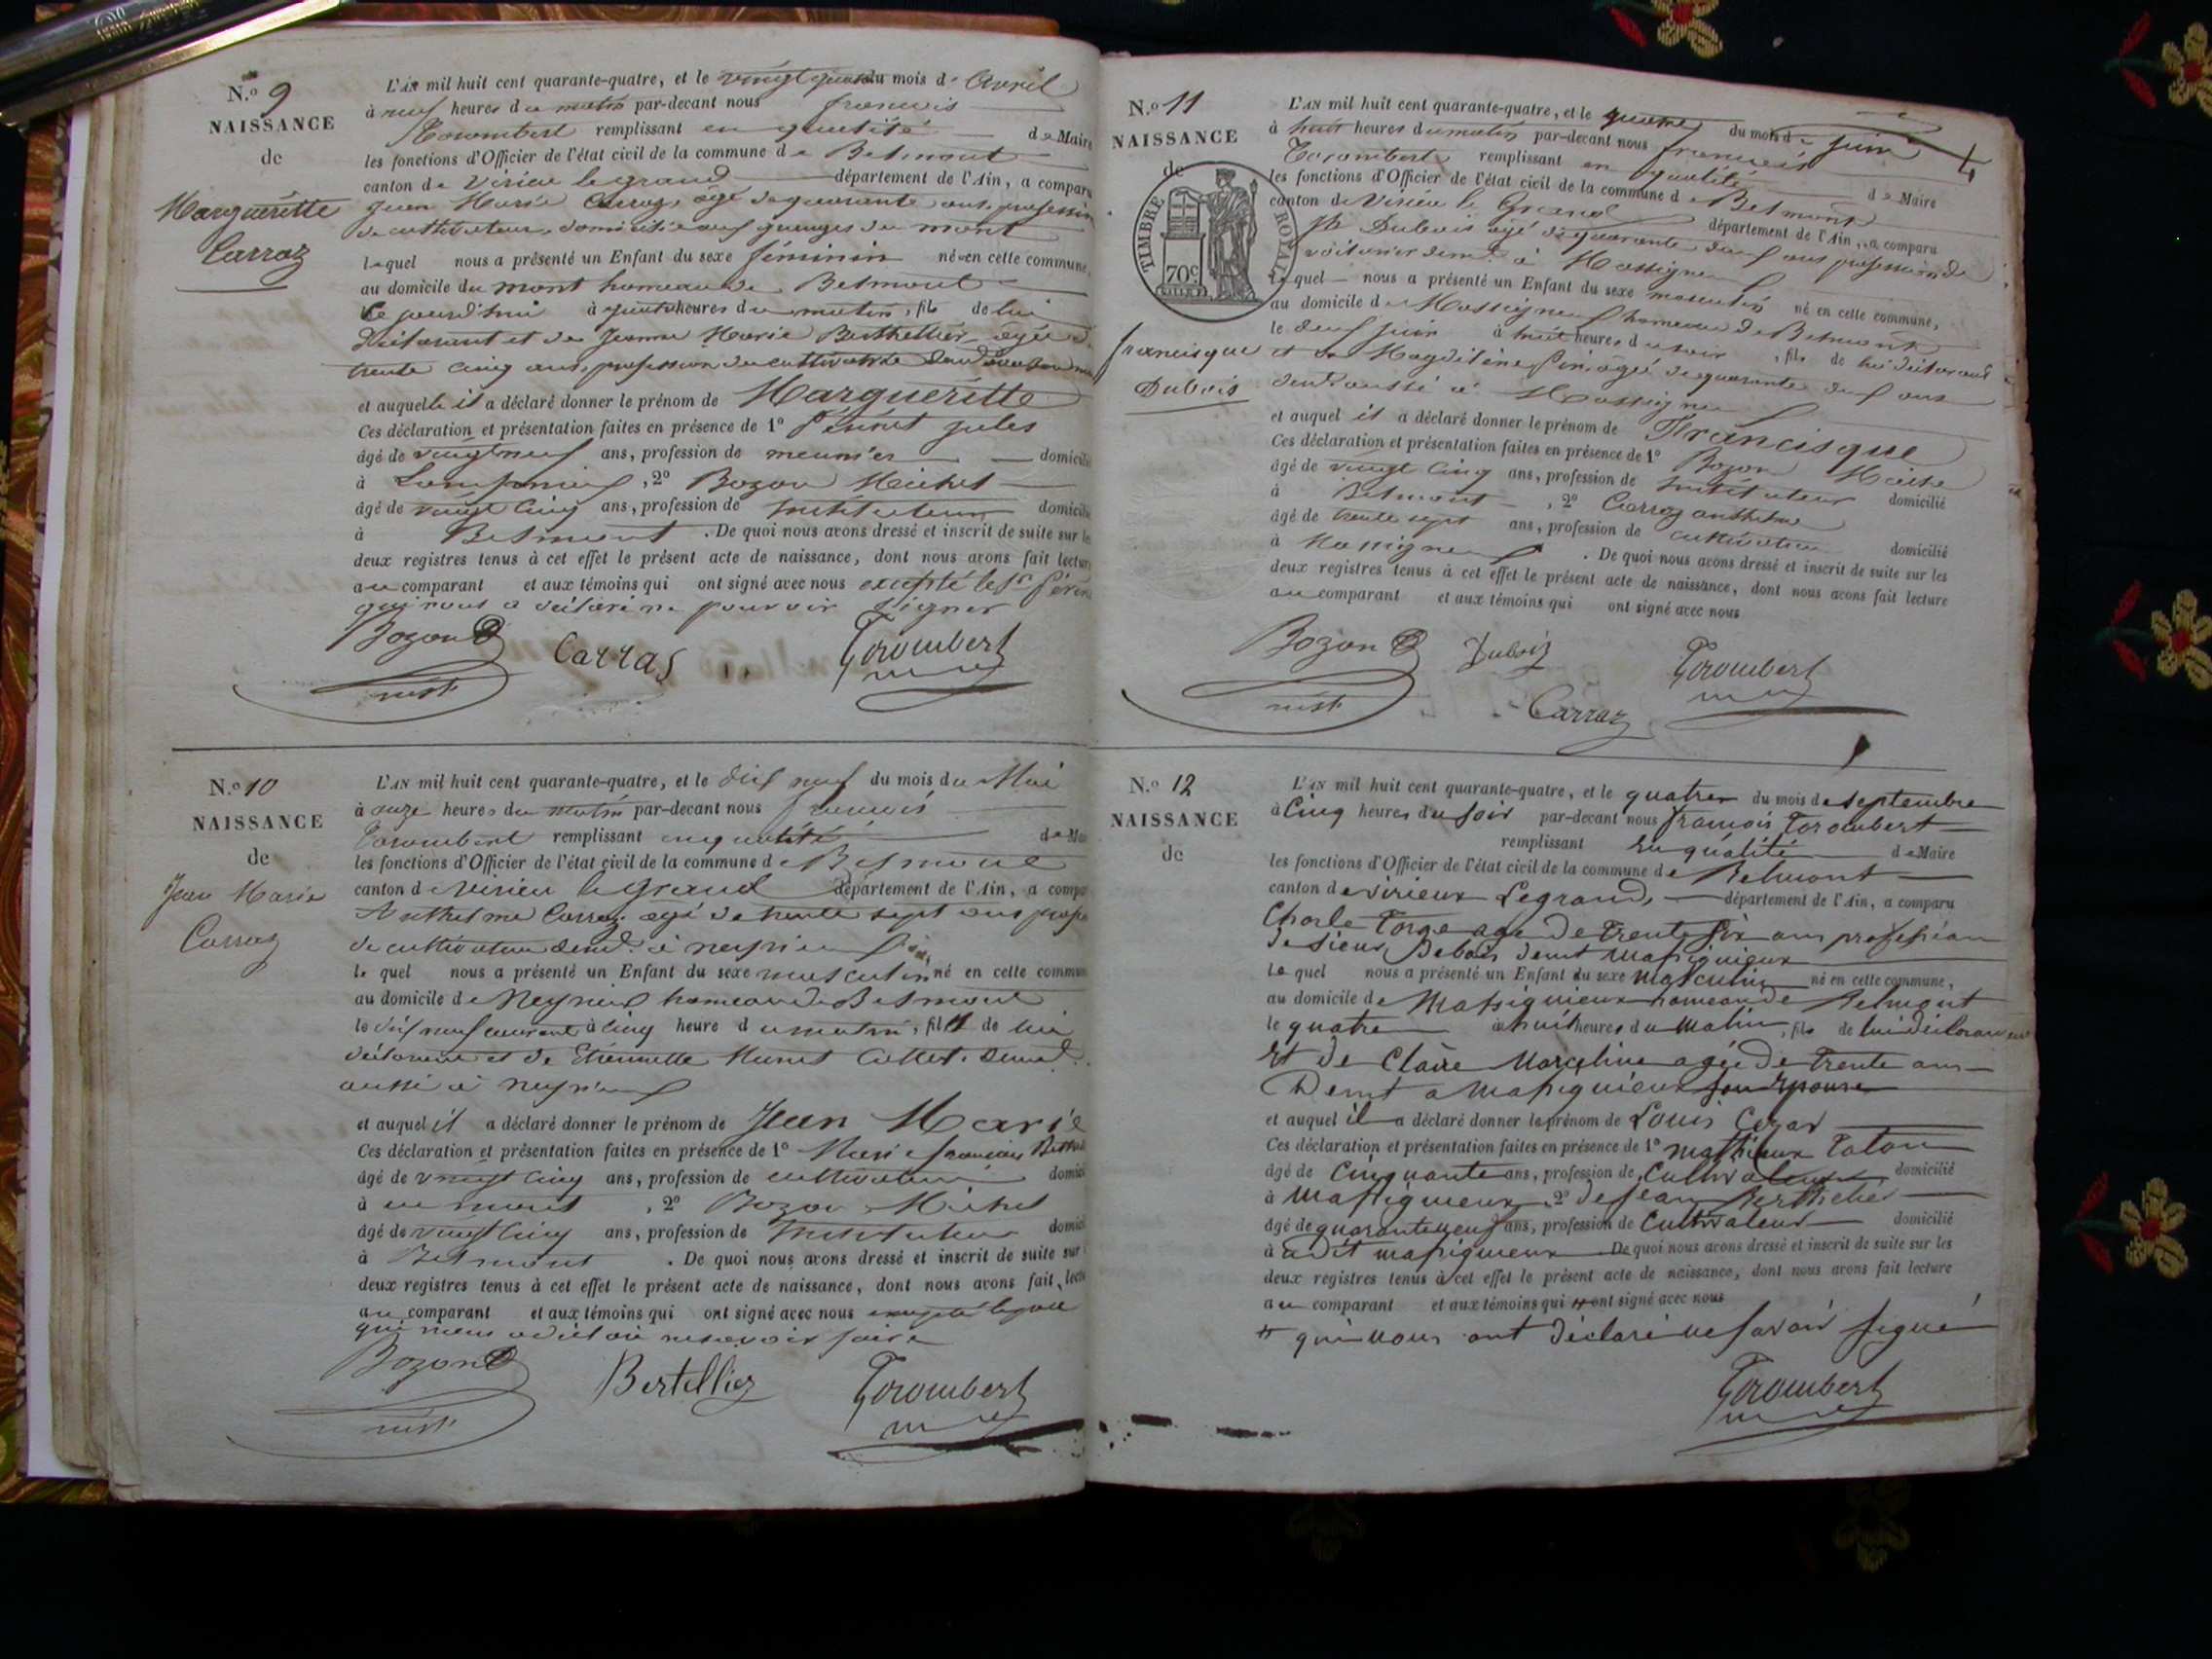 N.º 9
NAISSANCE
de
Marguéritte
Carraz
L'AN mil huit cent quarante-quatre, et le vingt quatre du mois d'Avril
à neuf heures du matin par-devant nous francois
Torombert remplissant en qualité de Maire
les fonctions d'Officier de l'état civil de la commune de Belmont
canton de Virieu le grand département de l'Ain, a comparu
Jean Marie Carraz, âgé de quarante ans, profession
de cultivateur, domicilié aux granges du mont
lequel nous a présenté un Enfant du sexe féminin né en cette commune,
au domicile du mont hameau de Belmont
Ce jourd'hui à quatre heures du matin, fils de lui
Déclarant et de Jeanne Marie Berthellier, agée de
trente cinq ans, profession de cultivatrice
et auquelle il a déclaré donner le prénom de Marguéritte
Ces déclaration et présentation faites en présence de 1º Pérret jules
âgé de vingt neuf ans, profession de meunier domicilié
à , 2º Bozon Michel
âgé de vingt cinq ans, profession de Instituteur domicilié
à Belmont . De quoi nous avons dressé et inscrit de suite sur les
deux registres tenus à cet effet le présent acte de naissance, dont nous avons fait lecture
au comparant et aux témoins qui ont signé avec nous excepté le Sr Péret
qui nous a déclaré ne pouvoir signer
Bozon Carras Torombert
inst.
N.º 10
NAISSANCE
de
Jean Marie
Carraz
L'AN mil huit cent quarante-quatre, et le dix neuf du mois du Mai
à onze heures du matin par-devant nous francois
Torombert remplissant en qualité de Maire
les fonctions d'Officier de l'état civil de la commune de Belmont
canton de Virieu le Grand département de l'Ain, a comparu
Anthelme Carraz, agé de trente sept ans profess
de cultivateur demt. à neyrieu
le quel nous a présenté un Enfant du sexe masculin, né en cette commune
au domicile de Neyrieu hameau de Belmont
le dix neuf courant à cinq heure du matin, fils de lui
déclarant et de Etiennette Collet. demt.
aussi à neyrieu
et auquel il a déclaré donner le prénom de Jean Marie
Ces déclaration et présentation faites en présence de 1º francois
âgé de vingt cinq ans, profession de cultivateur domicilié
à au mont , 2º Bozon Michel
âgé de vingt cinq ans, profession de Instituteur domicilié
à Belmont . De quoi nous avons dressé et inscrit de suite sur
deux registres tenus à cet effet le présent acte de naissance, dont nous avons fait lecture
au comparant et aux témoins qui ont signé avec nous excepté le père
qui nous a déclaré ne savoir faire
Bozon Bertellier Torombert
inst.
N.º 11
NAISSANCE
de
TIMBRE ROYAL
70c
francisque
Dubois
L'AN mil huit cent quarante-quatre, et le quatre du mois de juin
à huit heures du matin par-devant nous francois
Torombert remplissant en qualité de Maire
les fonctions d'Officier de l'état civil de la commune de Belmont
canton de Virieu le Grand département de l'Ain, a comparu
Dubois agé de quarante deux ans profession de
voiturier demt. à Massigneu
lequel nous a présenté un Enfant du sexe masculin né en cette commune,
au domicile de Massigneu hameau de Belmont
le deux juin à huit heures du soir, fils de lui déclarant
et de Magdeleine agée de quarante deux ans
demt. aussi à Massigneu
et auquel il a déclaré donner le prénom de Francisque
Ces déclaration et présentation faites en présence de 1º Bozon Michel
âgé de vingt cinq ans, profession de Instituteur domicilié
à Belmont , 2º Carraz anthelme
âgé de trente sept ans, profession de cultivateur domicilié
à . De quoi nous avons dressé et inscrit de suite sur les
deux registres tenus à cet effet le présent acte de naissance, dont nous avons fait lecture
au comparant et aux témoins qui ont signé avec nous
Bozon Duboiz Torombert
inst. Carraz
N.º 12
NAISSANCE
de
L'AN mil huit cent quarante-quatre, et le quatre du mois de septembre
à Cinq heures du soir par-devant nous francois Torombert
remplissant En qualité de Maire
les fonctions d'Officier de l'état civil de la commune de Belmont
canton de virieux Legrand, département de l'Ain, a comparu
Charle agé De trente Six ans profession
de Sieur Debois demt massiguieux
Le quel nous a présenté un Enfant du sexe masculin né en cette commune,
au domicile de Massiguieux hameau de Belmont
le quatre à huit heures du Matin, fils de lui déclarant
Et de Claire Marceline agée De trente ans
Demt a massiguieux son Epouse
et auquel il a déclaré donner le prénom de Louis Cezar
Ces déclaration et présentation faites en présence de 1º mathieux Talon
âgé de Cinquante ans, profession de Cultivateur domicilié
à massiguieux 2º de Jean Berthelier
âgé de quarante neuf ans, profession de Cultivateur domicilié
à a dit massiguieux De quoi nous avons dressé et inscrit de suite sur les
deux registres tenus à cet effet le présent acte de naissance, dont nous avons fait lecture
au comparant et aux témoins qui ont signé avec nous
qui nous ont déclaré ne savoir signé
Torombert